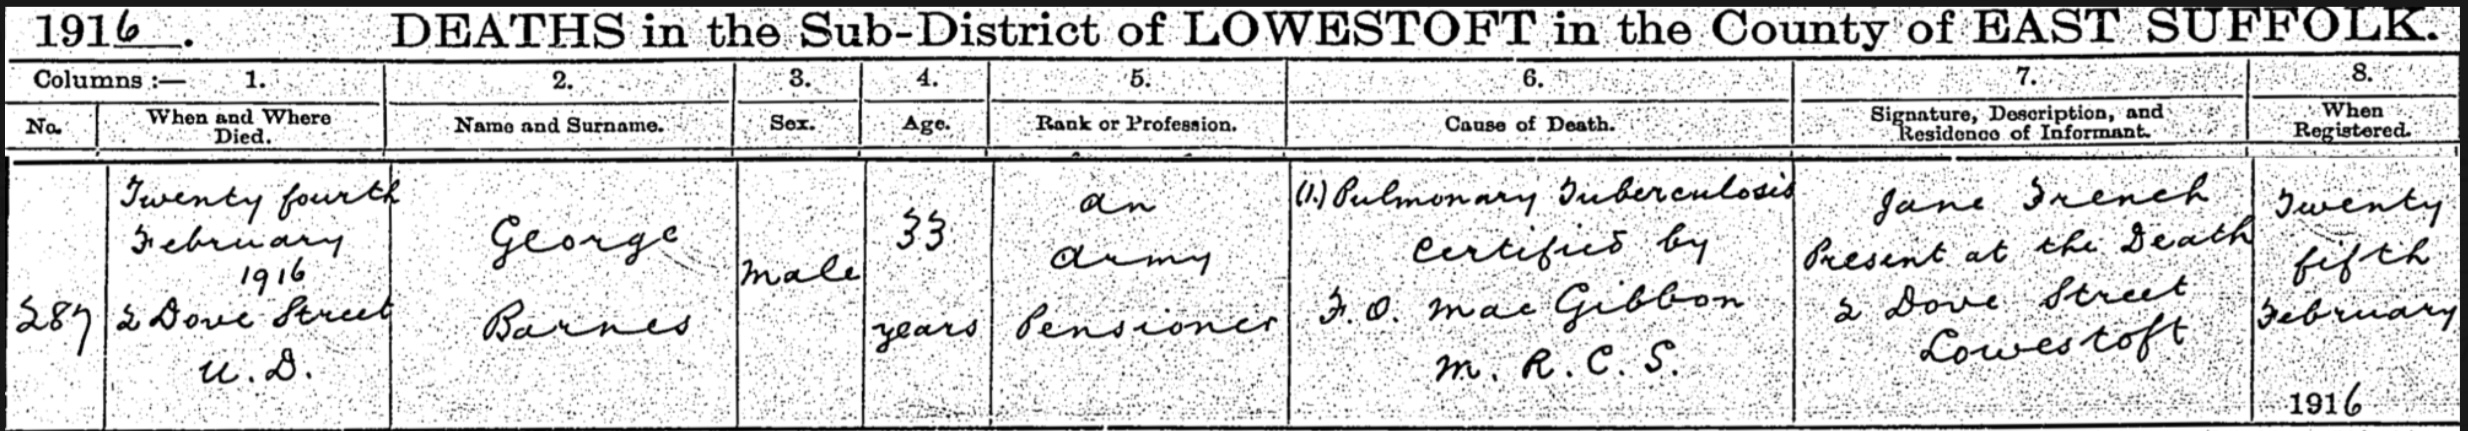 1916. DEATHS in the Sub-District of LOWESTOFT in the County of EAST SUFFOLK.
Columns :— 1. 2. 3. 4. 5. 6. 7. 8.
No. When and Where Died. Name and Surname. Sex. Age. Rank or Profession. Cause of Death. Signature, Description, and Residence of Informant. When Registered.
287
Twenty fourth
February
1916
2 Dove Street
U. D.
George
Barnes
male
33
years
an
Army
Pensioner
(1.) Pulmonary Tuberculosis
Certified by
F. O. Mac Gibbon
M. R. C. S.
Jane French
Present at the Death
2 Dove Street
Lowestoft
Twenty
fifth
February
1916